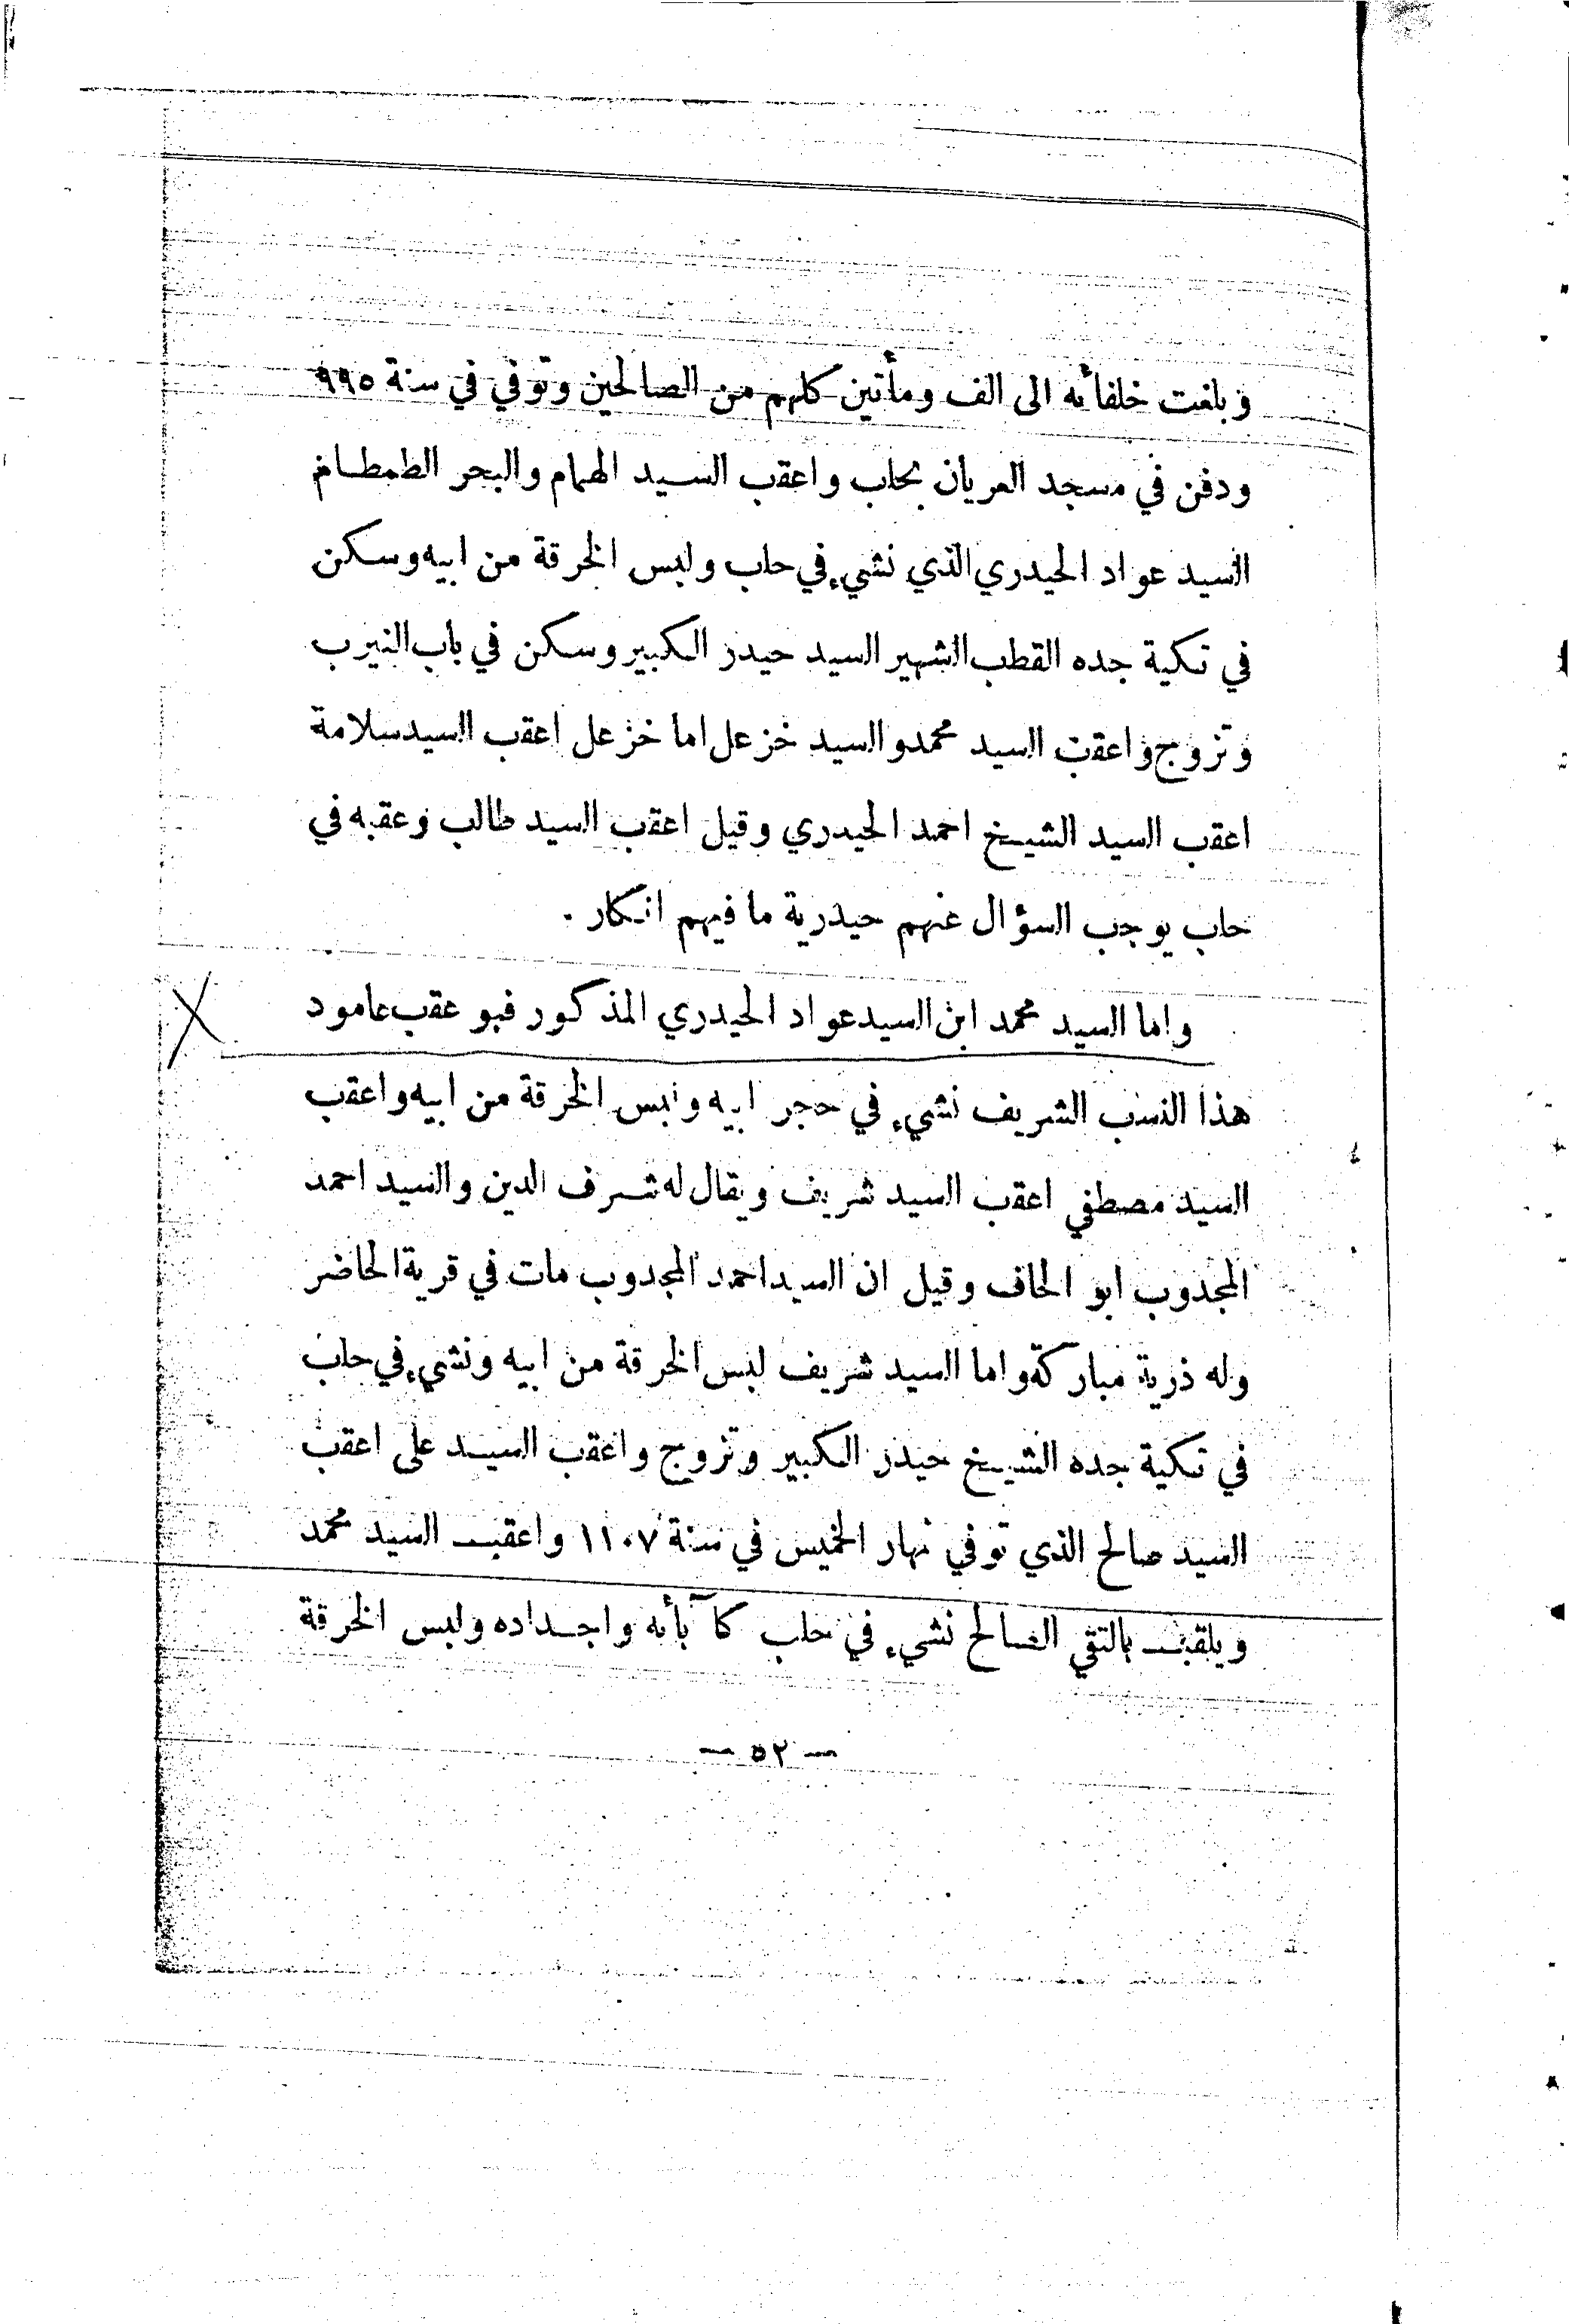 وبلغت خلفائه الى الف ومأتين كلهم من الصالحين وتوفي في سنة ٩٩٥
ودفن في مسجد العريان بحلب واعقب السيد الهمام والبحر الطمطام
السيد عواد الحيدري الذي نشيء في حلب ولبس الخرقة من ابيه وسكن
في تكية جده القطب الشهير السيد حيدر الكبير وسكن في باب النيرب
وتزوج واعقب السيد محمد والسيد خزعل اما خزعل اعقب السيد سلامة
اعقب السيد الشيخ احمد الحيدري وقيل اعقب السيد طالب وعقبه في
حلب يوجب السؤال عنهم حيدرية ما فيهم انكار .
واما السيد محمد ابن السيد عواد الحيدري المذكور فهو عقب عامود
هذا النسب الشريف نشيء في حجر ابيه ولبس الخرقة من ابيه واعقب
السيد مصطفي اعقب السيد شريف ويقال له شرف الدين والسيد احمد
المجدوب ابو الحاف وقيل ان السيد احمد المجدوب مات في قرية الحاضر
وله ذرية مباركة واما السيد شريف لبس الخرقة من ابيه ونشيء في حلب
في تكية جده الشيخ حيدر الكبير وتزوج واعقب السيد على اعقب
السيد صالح الذي توفي نهار الخميس في سنة ١١٠٧ واعقب السيد محمد
ويلقب بالتقي الصالح نشيء في حلب كآبأه واجداده ولبس الخرقة
— ٥٢ —